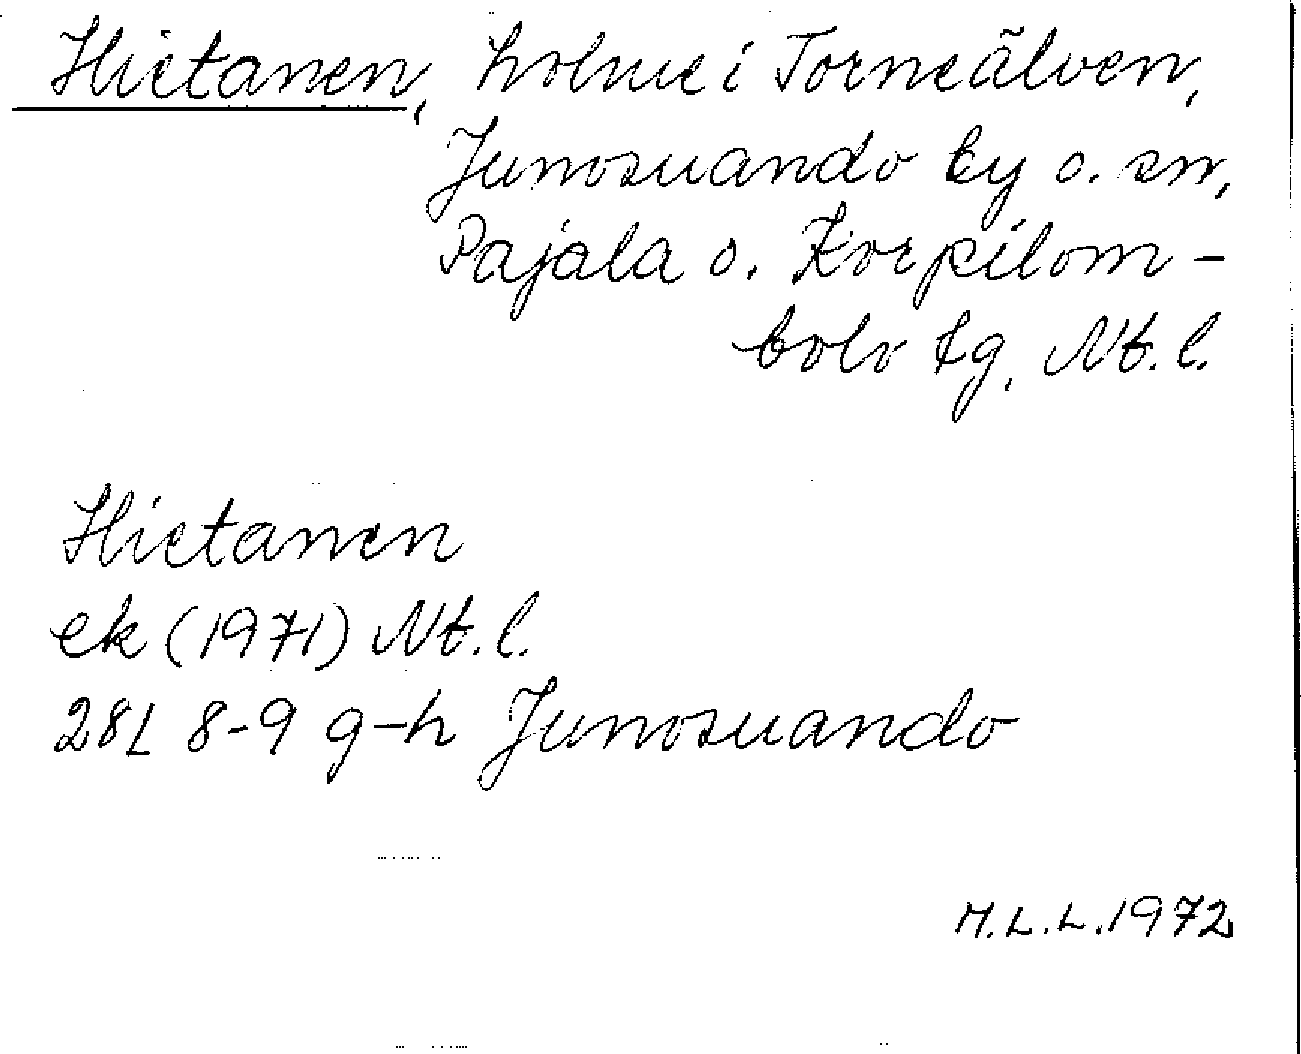 Hietanen, holme i Torneälven,
Junosuando by o. sn,
Pajala o. Korpilom-
bolo tg, Nb. l.
Hietanen
ek (1971) Nb. l.
28L 8-9 g-h Junosuando
M.L.L. 1972